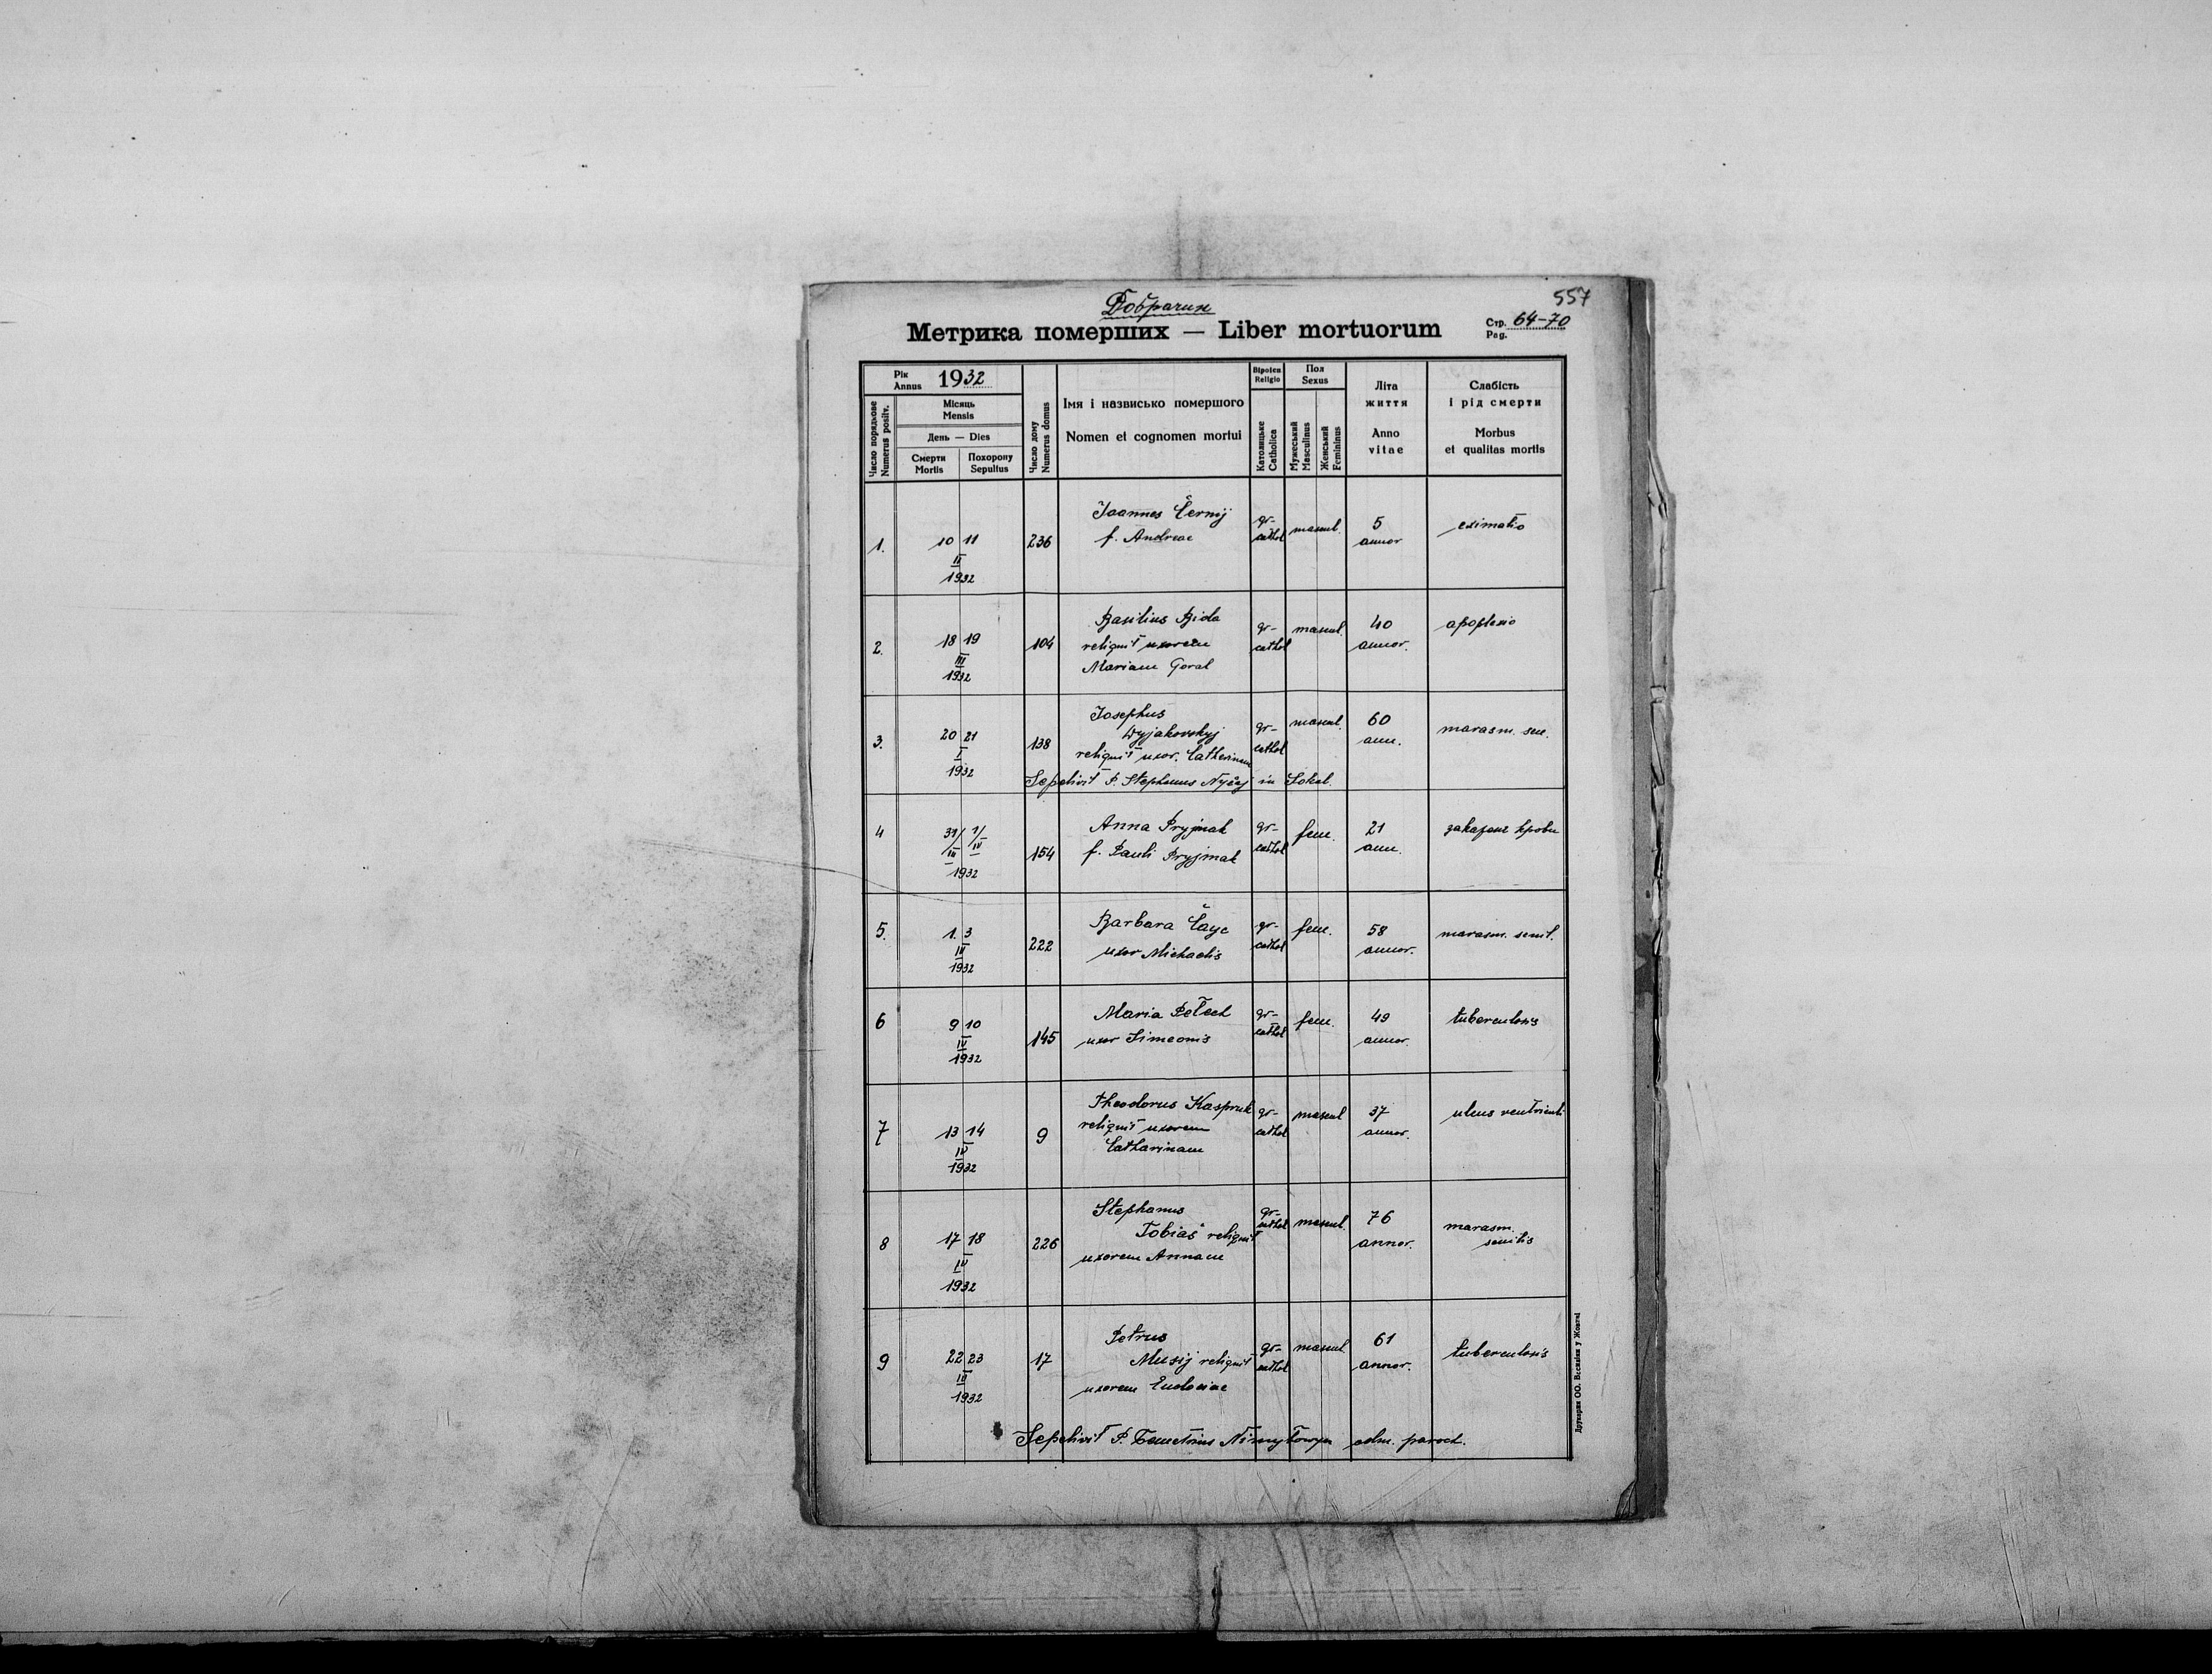 557
Добрачин
Метрика померших — Liber mortuorum
Стр. 64-70
Pag.
Рік
Annus 1932
Місяць
Mensis
День — Dies
Смерти
Mortis
Похорону
Sepultus
Число порядкове
Numerus positiv.
Число дому
Numerus domus
Імя і назвисько померщого
Nomen et cognomen mortui
Religio
Католицьке
Catholica
Пол
Sexus
Мужеський
Masculinus
Женський
Femininus
Літа
життя
Anno
vitae
Слабість
і рід смерти
Morbus
et qualitas mortis
1. 10 11 II 1932 236
Joannes Černij
f. Andreae
gr-
cathol mascul. 5
annor
2. 18 19 III 1932 104
Basilius Bida
reliquit uxorem
Mariam Goral
gr-
cathol mascul. 40
annor.
apoplexio
3. 20 21 I 1932 138
Josephus
Dyjakovskyj
reliquit uxor. Catherinam
gr-
cathol mascul. 60
ann.
marasm. sen.
Sepelivit P. Stephanus in Sokal.
4 31/III 1/IV 1932 154
Anna Pryjmak
f. Pauli Pryjmak
gr-
cathol fem. 21
ann.
закаженє крови
5. 1. 3 IV 1932 222
Barbara
uxor Michaelis
gr-
cathol fem. 58
annor.
marasm. senil.
6 9 10 IV 1932 145
Maria Petech
uxor Simeonis
gr-
cathol fem. 49
annor.
tuberculosis
7 13 14 IV 1932 9
Theodorus Kaspruk
reliquit uxorem
Catharinam
gr-
cathol mascul 37
annor.
ulcus ventriculi
8 17 18 IV 1932 226
Stephanus
Tobiaš reliquit
uxorem Annam
gr-
cathol mascul. 76
annor.
marasm.
senilis
9 22 23 III 1932 17
Petrus
Musij reliquit
uxorem
gr-
cathol mascul 61
annor.
tuberculosis
Sepelivit P. adm. paroch.
Друкарня ОО. Василіян у Жовкві